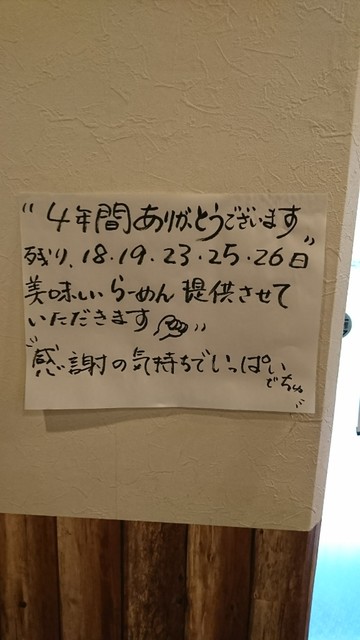 "4年間ありがとうございます"
残り、18・19・23・25・26日
美味しいらーめん提供させて
いただきます
"感謝の気持ちでいっぱい
でちゅ"